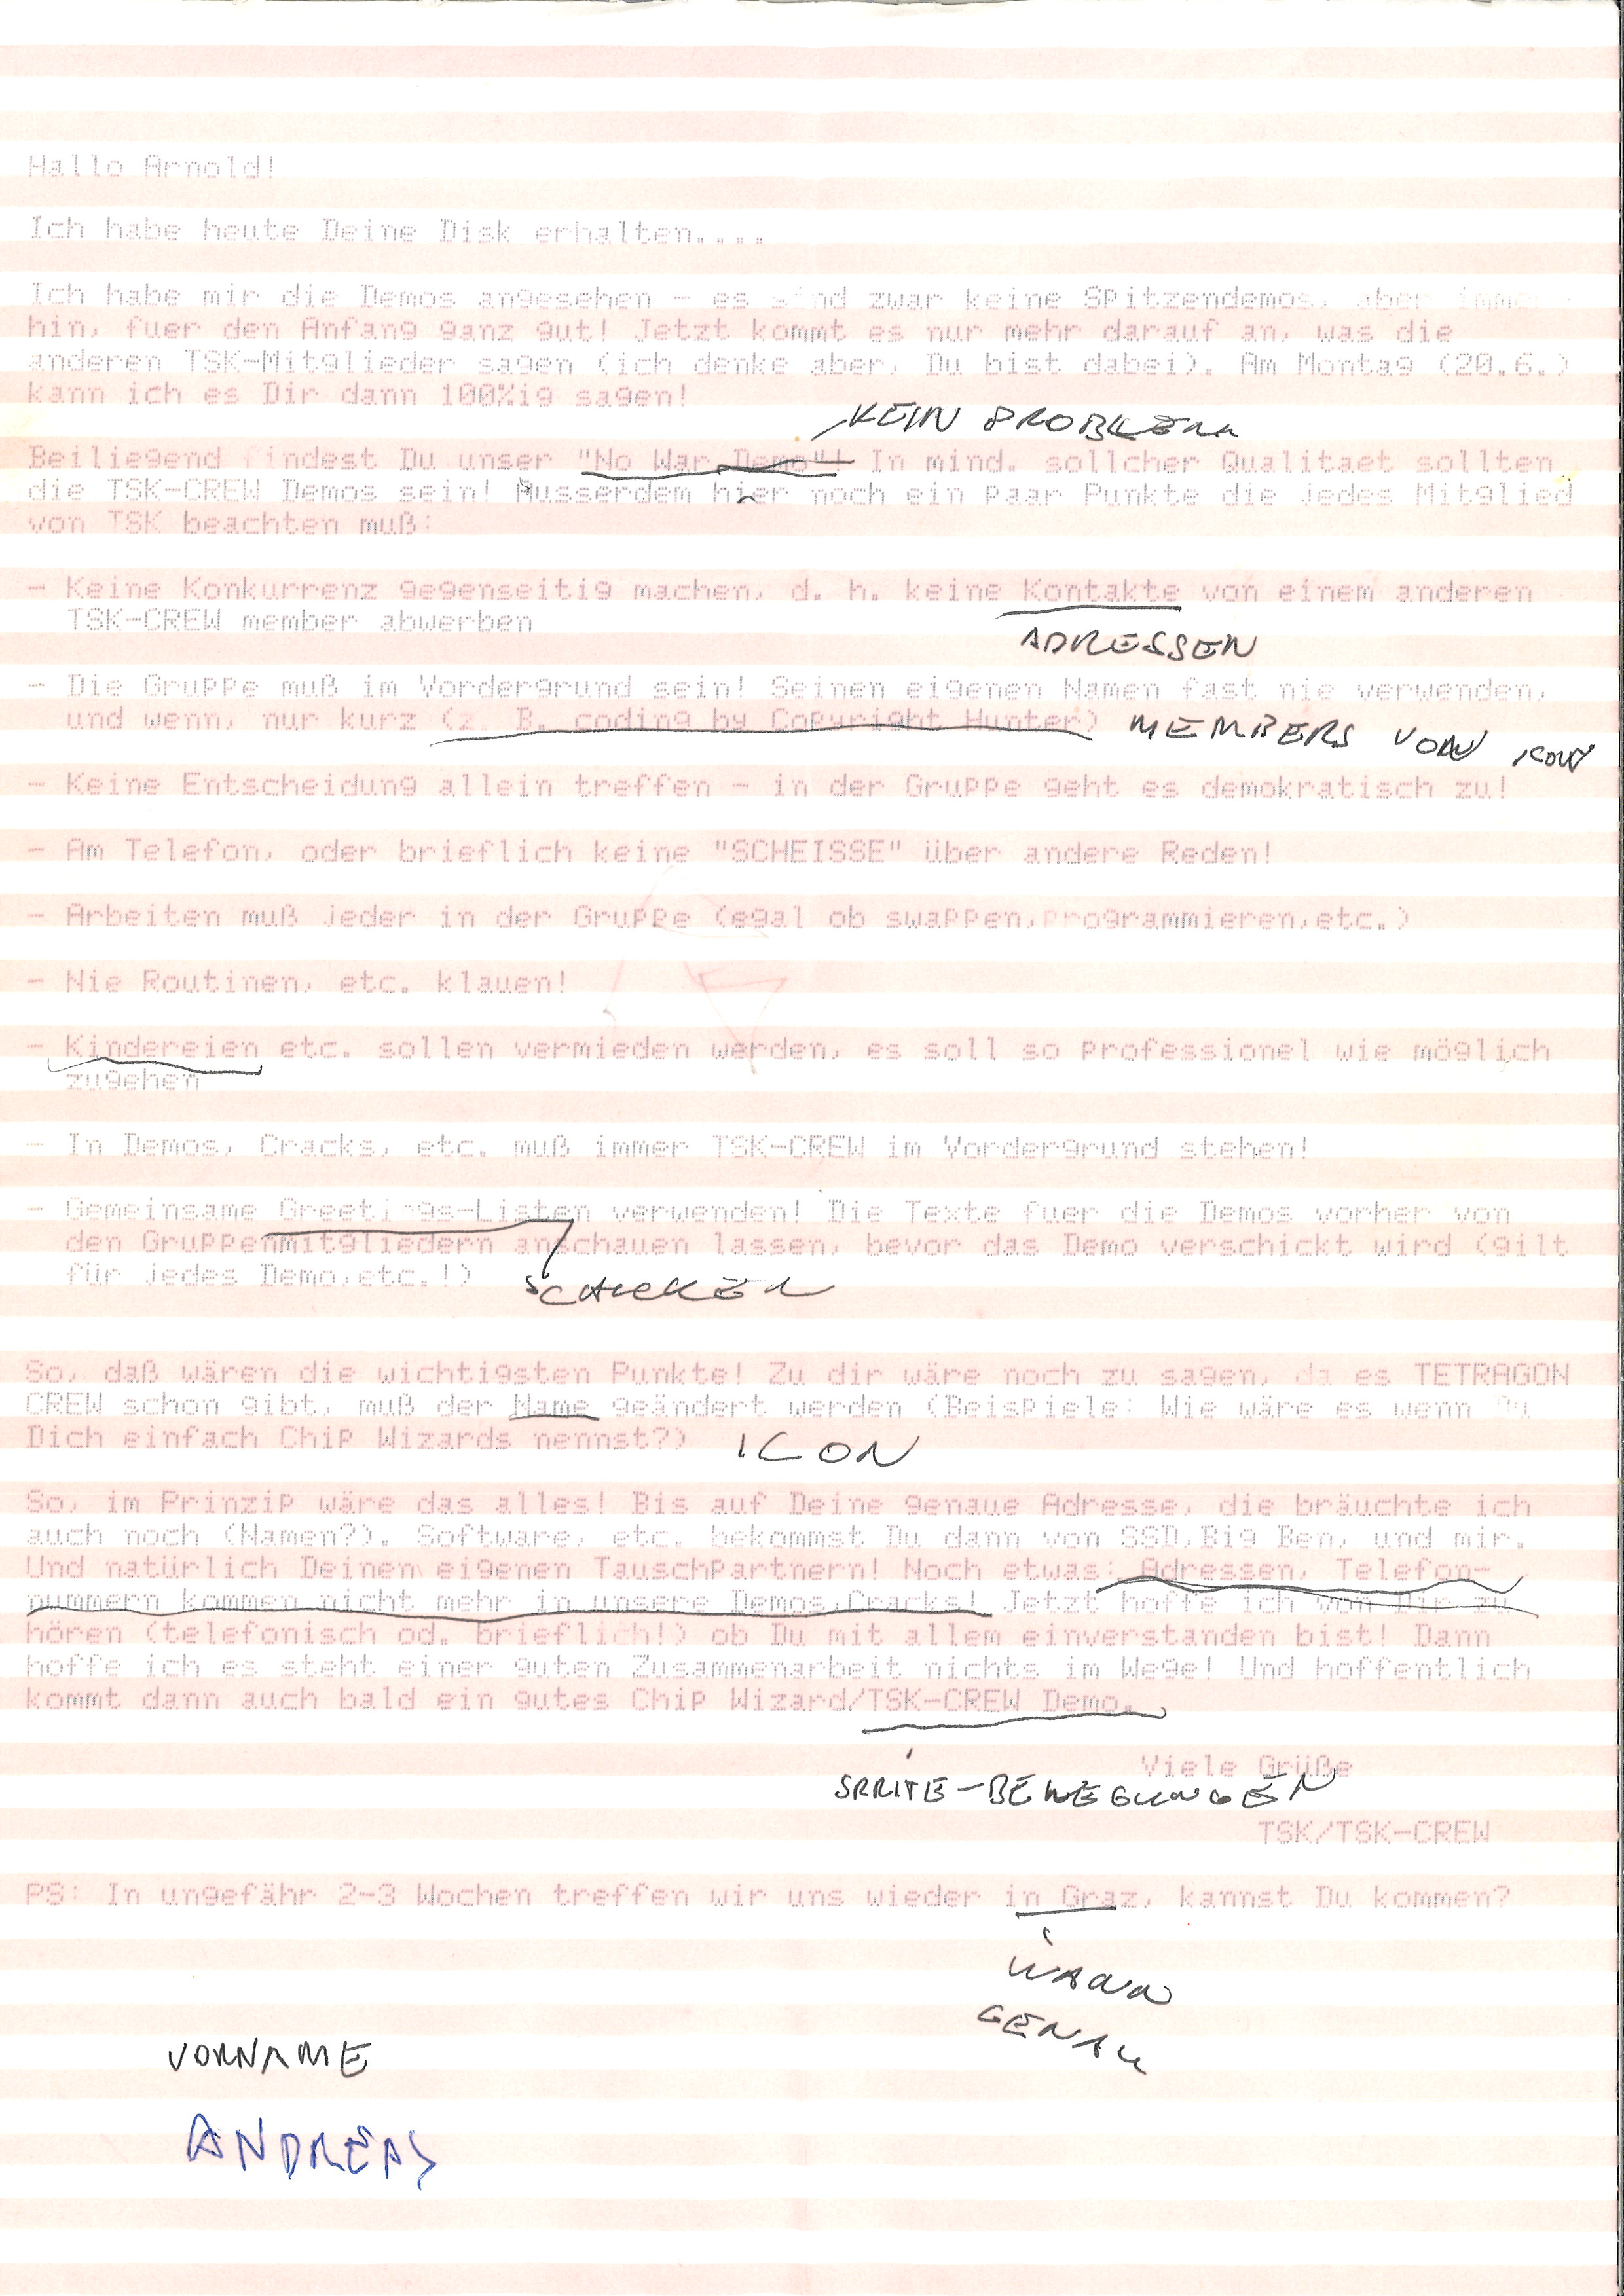 Hallo Arnold!
Ich habe heute Deine Disk erhalten....
Ich habe mir die Demos angesehen - es sind zwar keine Spitzendemos, aber immer
hin, fuer den Anfang ganz gut! Jetzt kommt es nur mehr darauf an, was die
anderen TSK-Mitglieder sagen (ich denke aber, Du bist dabei). Am Montag (20.6.)
kann ich es Dir dann 100%ig sagen!
KEIN PROBLEM
Beiliegend findest Du unser "No War Demo"! In mind. sollcher Qualitaet sollten
die TSK-CREW Demos sein! Ausserdem hier noch ein paar Punkte die jedes Mitglied
von TSK beachten muß:
- Keine Konkurrenz gegenseitig machen, d. h. keine Kontakte von einem anderen
TSK-CREW member abwerben
ADRESSEN
- Die Gruppe muß im Vordergrund sein! Seinen eigenen Namen fast nie verwenden,
und wenn, nur kurz (z. B. coding by Copyright Hunter) MEMBERS VON ICON
- Keine Entscheidung allein treffen - in der Gruppe geht es demokratisch zu!
- Am Telefon, oder brieflich keine "SCHEISSE" über andere Reden!
- Arbeiten muß jeder in der Gruppe (egal ob swappen,programmieren,etc.)
- Nie Routinen, etc. klauen!
- Kindereien etc. sollen vermieden werden, es soll so professionel wie möglich
zugehen
- In Demos, Cracks, etc. muß immer TSK-CREW im Vordergrund stehen!
- Gemeinsame Greetings-Listen verwenden! Die Texte fuer die Demos vorher von
den Gruppenmitgliedern anschauen lassen, bevor das Demo verschickt wird (gilt
für jedes Demo,etc.!)
SCHICKEN
So, daß wären die wichtigsten Punkte! Zu dir wäre noch zu sagen, da es TETRAGON
CREW schon gibt, muß der Name geändert werden (Beispiele: Wie wäre es wenn Du
Dich einfach Chip Wizards nennst?) ICON
So, im Prinzip wäre das alles! Bis auf Deine genaue Adresse, die bräuchte ich
auch noch (Namen?). Software, etc. bekommst Du dann von SSD,Big Ben, und mir.
Und natürlich Deinen eigenen Tauschpartnern! Noch etwas: Adressen, Telefon-
nummern kommen nicht mehr in unsere Demos,Cracks! Jetzt hoffe ich von Dir zu
hören (telefonisch od. brieflich!) ob Du mit allem einverstanden bist! Dann
hoffe ich es steht einer guten Zusammenarbeit nichts im Wege! Und hoffentlich
kommt dann auch bald ein gutes Chip Wizard/TSK-CREW Demo.
Viele Grüße
SPRITE-BEWEGUNGEN
TSK/TSK-CREW
PS: In ungefähr 2-3 Wochen treffen wir uns wieder in Graz, kannst Du kommen?
WANN
GENAU
VORNAME
ANDREAS